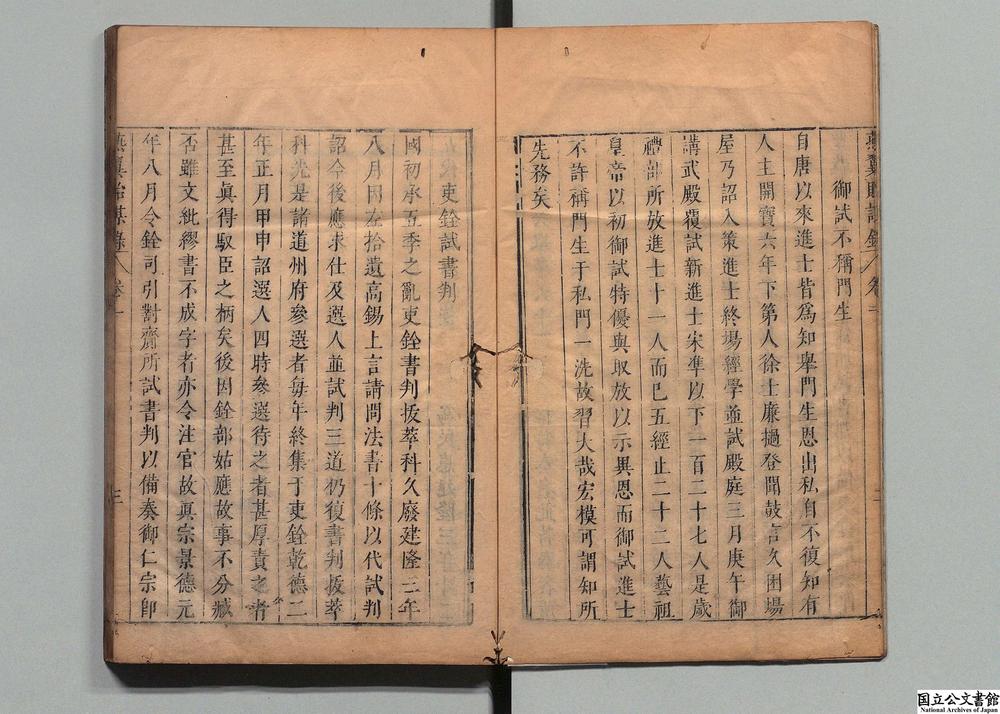 燕翼貽謀錄 卷一
御試不稱門生
自唐以來進士皆爲知舉門生恩出私自不復知有
人主開寶六年下第人徐士廉撾登聞鼓言久困場
屋乃詔入策進士終場經學並試殿庭三月庚午御
講武殿覆試新進士宋準以下一百二十七人是歲
禮部所放進士十一人而已五經止二十二人藝祖
皇帝以初御試特優與取放以示異恩而御試進士
不許稱門生于私門一洗故習大哉宏模可謂知所
先務矣
吏銓試書判
國初承五季之亂吏銓書判拔萃科久廢建隆三年
八月因左拾遺高錫上言請問法書十條以代試判
詔今後應求仕及選人並試判三道仍復書判拔萃
科先是諸道州府參選者每年終集于吏銓乾德二
年正月甲申詔選人四時參選待之者甚厚責之者
甚至眞得馭臣之柄矣後因銓部姑應故事不分臧
否雖文紕繆書不成字者亦令注官故眞宗景德元
年八月令銓司引對齎所試書判以備奏御仁宗卽
燕翼詒謀錄 卷一 三
国立公文書館
National Archives of Japan